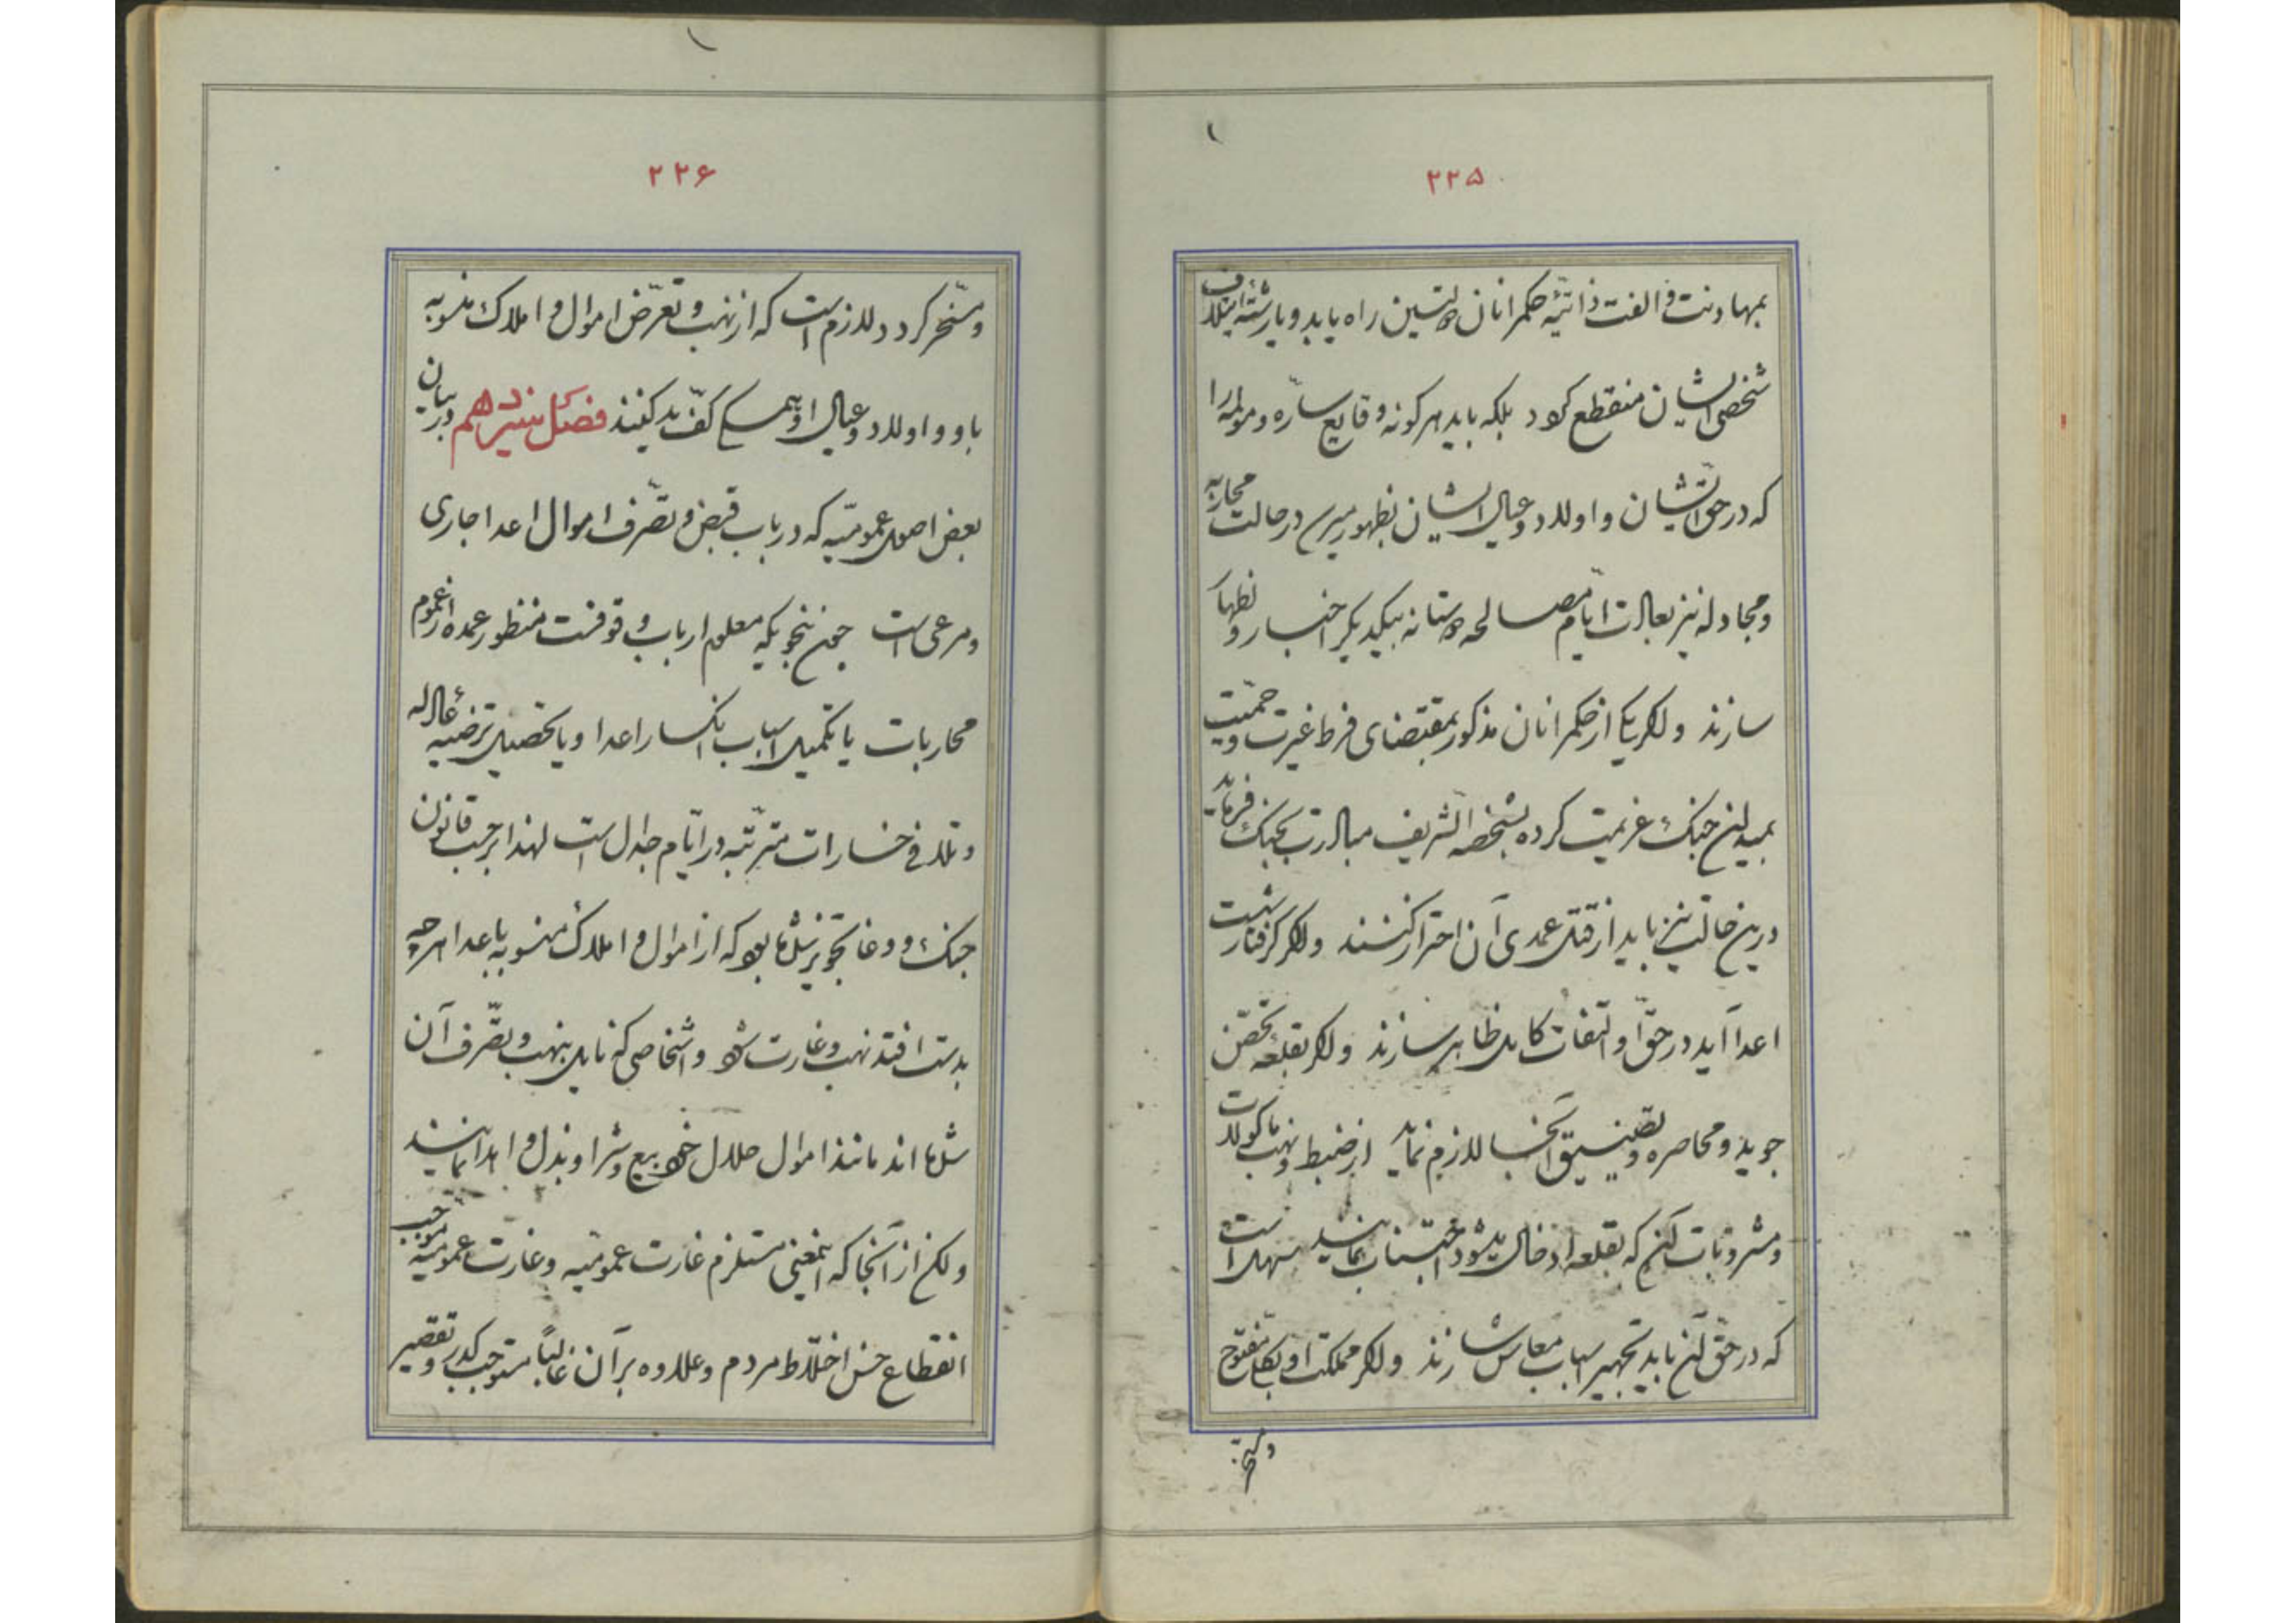 ۲۲۵
بمهادنت و الفت ذاتیّهٔ حکمرانان دولتین راه یابد و یا رشتهٔ ایتلاف
شخصی ایشان منقطع کردد بلکه باید هر کونه وقایع سارّه و مولمه را
که در حقّ ایشان و اولاد و عیال ایشان بظهور میرسد در حالت محاربه
و مجادله نیز بعادت ایّام مصالحه دوستانه بیکدیکر اخبار و اظهار
سازند و اکر یکی از حکمرانان مذکور بمقتضای فرط غیرت و حمیّت
بمیدان جنک عزیمت کرده بشخصه الشریف مبادرت بجنک فرماید
درین حالت نیز باید از قتل عمدی آن احتراز کنند و اکر کرفتار دست
اعدا آید در حقّ او التفات کامل ظاهر سازند و اکر بقلعه تحصّن
جوید و محاصره و تضییق آنجا لازم نماید از ضبط و نهب ماکولات
و مشروبات آن که بقلعه ادخال میشود اجتناب نمایند سهل است
که در حقّ آن باید تجهیز اسباب معاش سازند و اکر مملکت او بکلی مفتوح
و مسخّر
۲۲۶
و مسخّر کردد لازم است که از نهب و تعرّض اموال و املاک منسوبه
باو و اولاد و عیال او بهمه کفّ ید کنند فصل سیزدهم در بیان
بعض اصول عمومیّه که در باب قبض و تصرّف اموال اعدا جاری
و مرعی است چون بنحویکه معلوم ارباب وقوفست منظور عمده از عموم
محاربات یا تکمیل اسباب انکسار اعدا و یا تحصیل ترضیه عادله
و تلافی خسارات مترتّبه در ایّام جدال است لهذا بر حسب قانون
جنک و وغا تجویز شده بود که از اموال و املاک منسوبه باعدا هر چه
بدست افتد نهب و غارت شود و اشخاصی که نایل بنهب و تصرّف آن
شده‌اند مانند اموال حلال خود بیع و شرا و بذل و اهدا نمایند
و لکن از آنجا که اینمعنی مستلزم غارت عمومیّه و غارت عمومیّه موجب
انقطاع حسن اختلاط مردم و علاوه بر آن غالباً مستوجب کدر و تقصیر